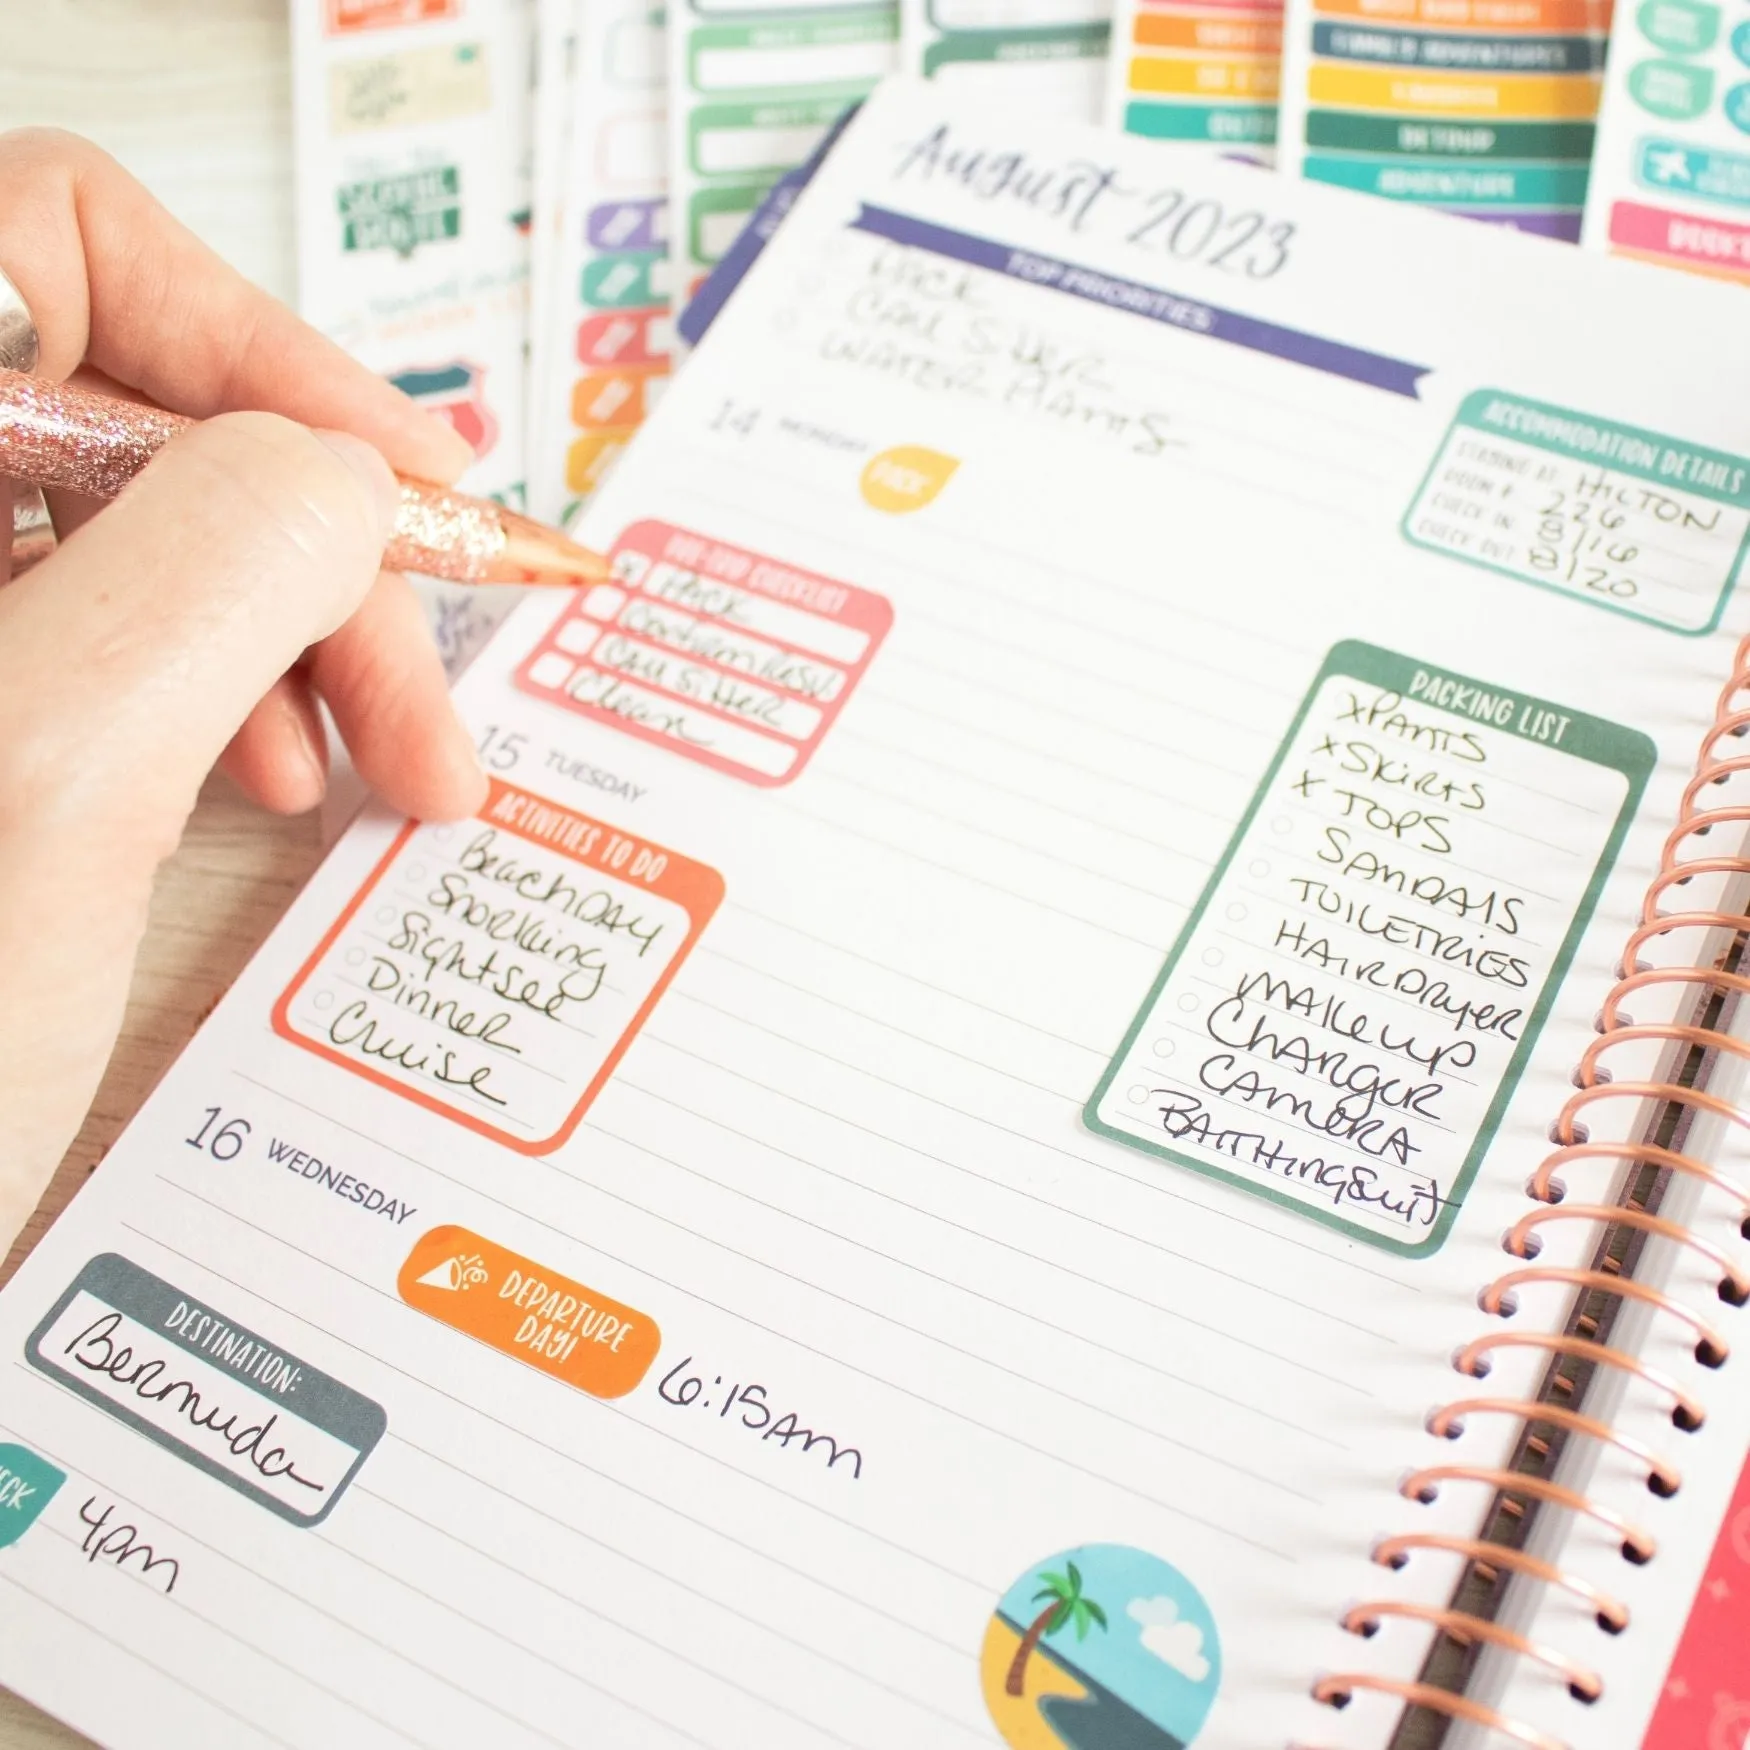 August 2023
TOP PRIORITIES
PACK
CALL S. HER
WATER PLANTS
14 MONDAY
PACK
ACCOMMODATION DETAILS
STAYING AT: HILTON
ROOM #: 226
CHECK IN: 8/16
CHECK OUT: 8/20
PRE-TRIP CHECKLIST
x PACK
Confirm Resv.
CALL S. HER
Clean
PACKING LIST
x PANTS
x SKIRTS
x TOPS
SANDALS
TOILETRIES
HAIRDRYER
MAKEUP
CHARGER
CAMERA
BATHINGSUIT
15 TUESDAY
ACTIVITIES TO DO
BEACHDAY
Snorkling
Sightsee
Dinner
Cruise
16 WEDNESDAY
DEPARTURE
DAY!
6:15Am
DESTINATION:
Bermuda
4pm
DETOUR
ADVENTURE